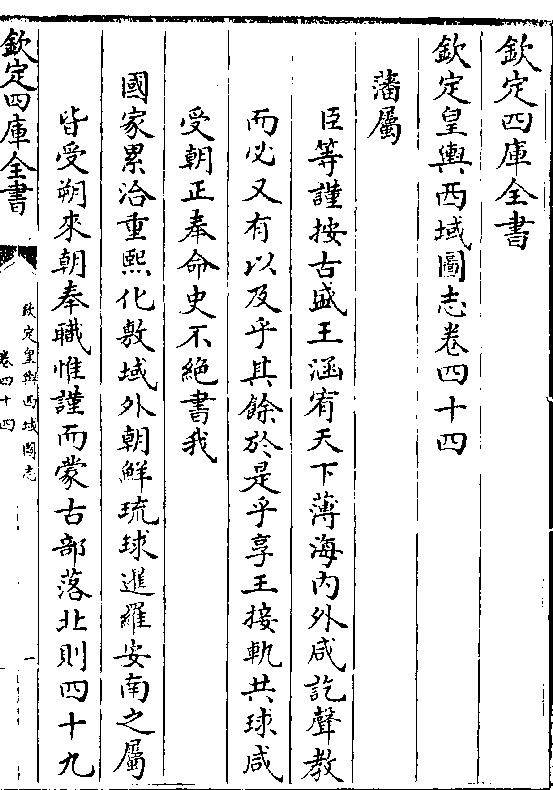 欽定四庫全書
欽定皇輿西域圖志卷四十四
藩屬
臣等謹按古盛王涵宥天下薄海內外咸訖聲教
而必又有以及乎其餘於是乎享王接軌共球咸
受朝正奉命史不絶書我
國家累洽重熙化敷域外朝鮮琉球暹羅安南之屬
皆受朔來朝奉職惟謹而蒙古部落北則四十九
欽定四庫全書
欽定皇輿西域圖志
卷四十四
一